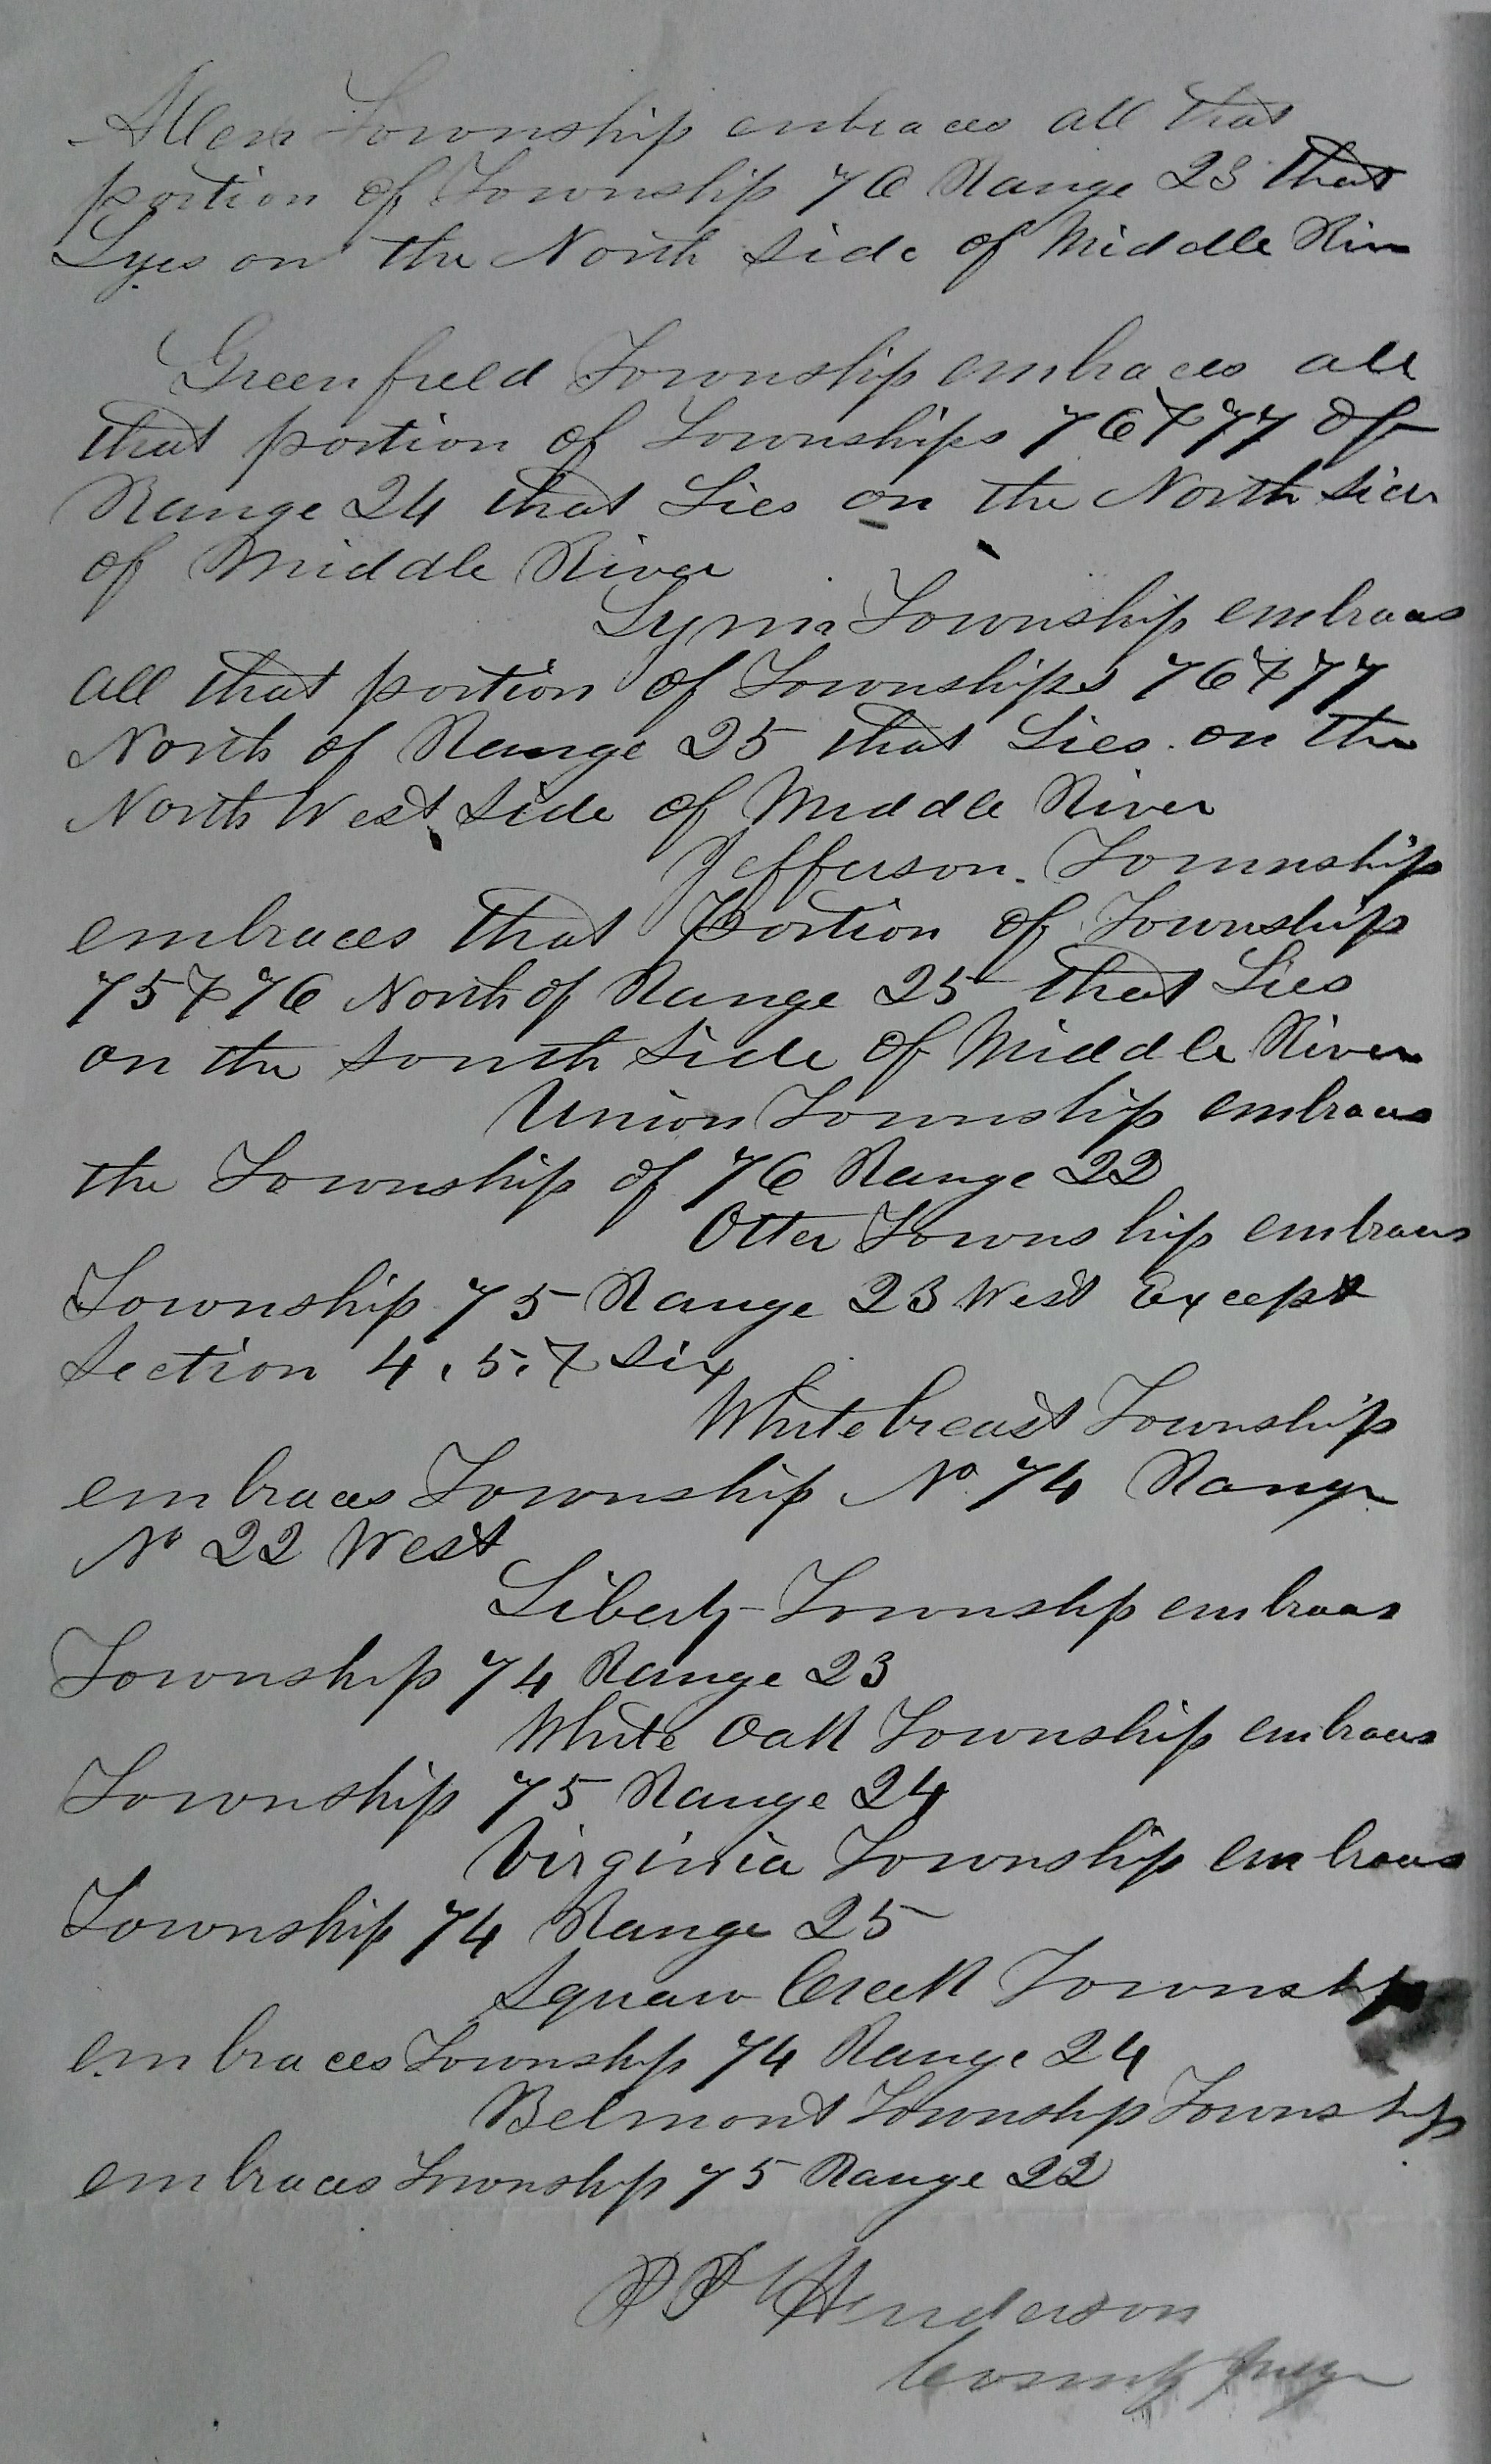 Allen Township embraces all that
portion of Township 76 Range 23 that
Lyes on the North Side of Middle River
Greenfield Township embraces all
that portion of Townships 76 & 77 of
Range 24 that Lies on the North Side
of Middle River
Lynn Township embraces
all that portion of Townships 76 & 77
North of Range 25 that Lies on the
North West Side of Middle River
Jefferson Township
embraces that Portion of Township
75 & 76 North of Range 25 that Lies
on the South Side of Middle River
Union Township embraces
the Township of 76 Range 22
Otter Township embraces
Township 75 Range 23 West Except
Section 4, 5, & Six
Whitebreast Township
embraces Township No 74 Range
No 22 West
Liberty Township embraces
Township 74 Range 23
White Oak Township embraces
Township 75 Range 24
Virginia Township embraces
Township 74 Range 25
Squaw Creek Township
embraces Township 74 Range 24
Belmont Township Township
embraces Township 75 Range 22
P P Henderson
County Judge